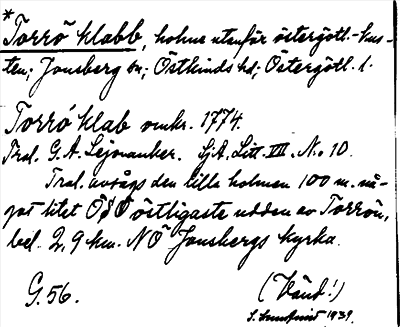 *
Torrö klabb, holme utanför östergötl.-kus-
ten; Jonsberg sn; Östkinds hd; Östergötl. l.
Torrö klab omkr. 1774.
Trol. G. A. Lejonanker. SjA, Litt. VIII. No 10.
Trol. avsågs den lilla holmen 100 m. nå-
got litet ÖSÖ östligaste udden av Torrön,
bel. 2,9 km. NÖ Jonsbergs kyrka.
G. 56. (Vänd!)
S. 1939.